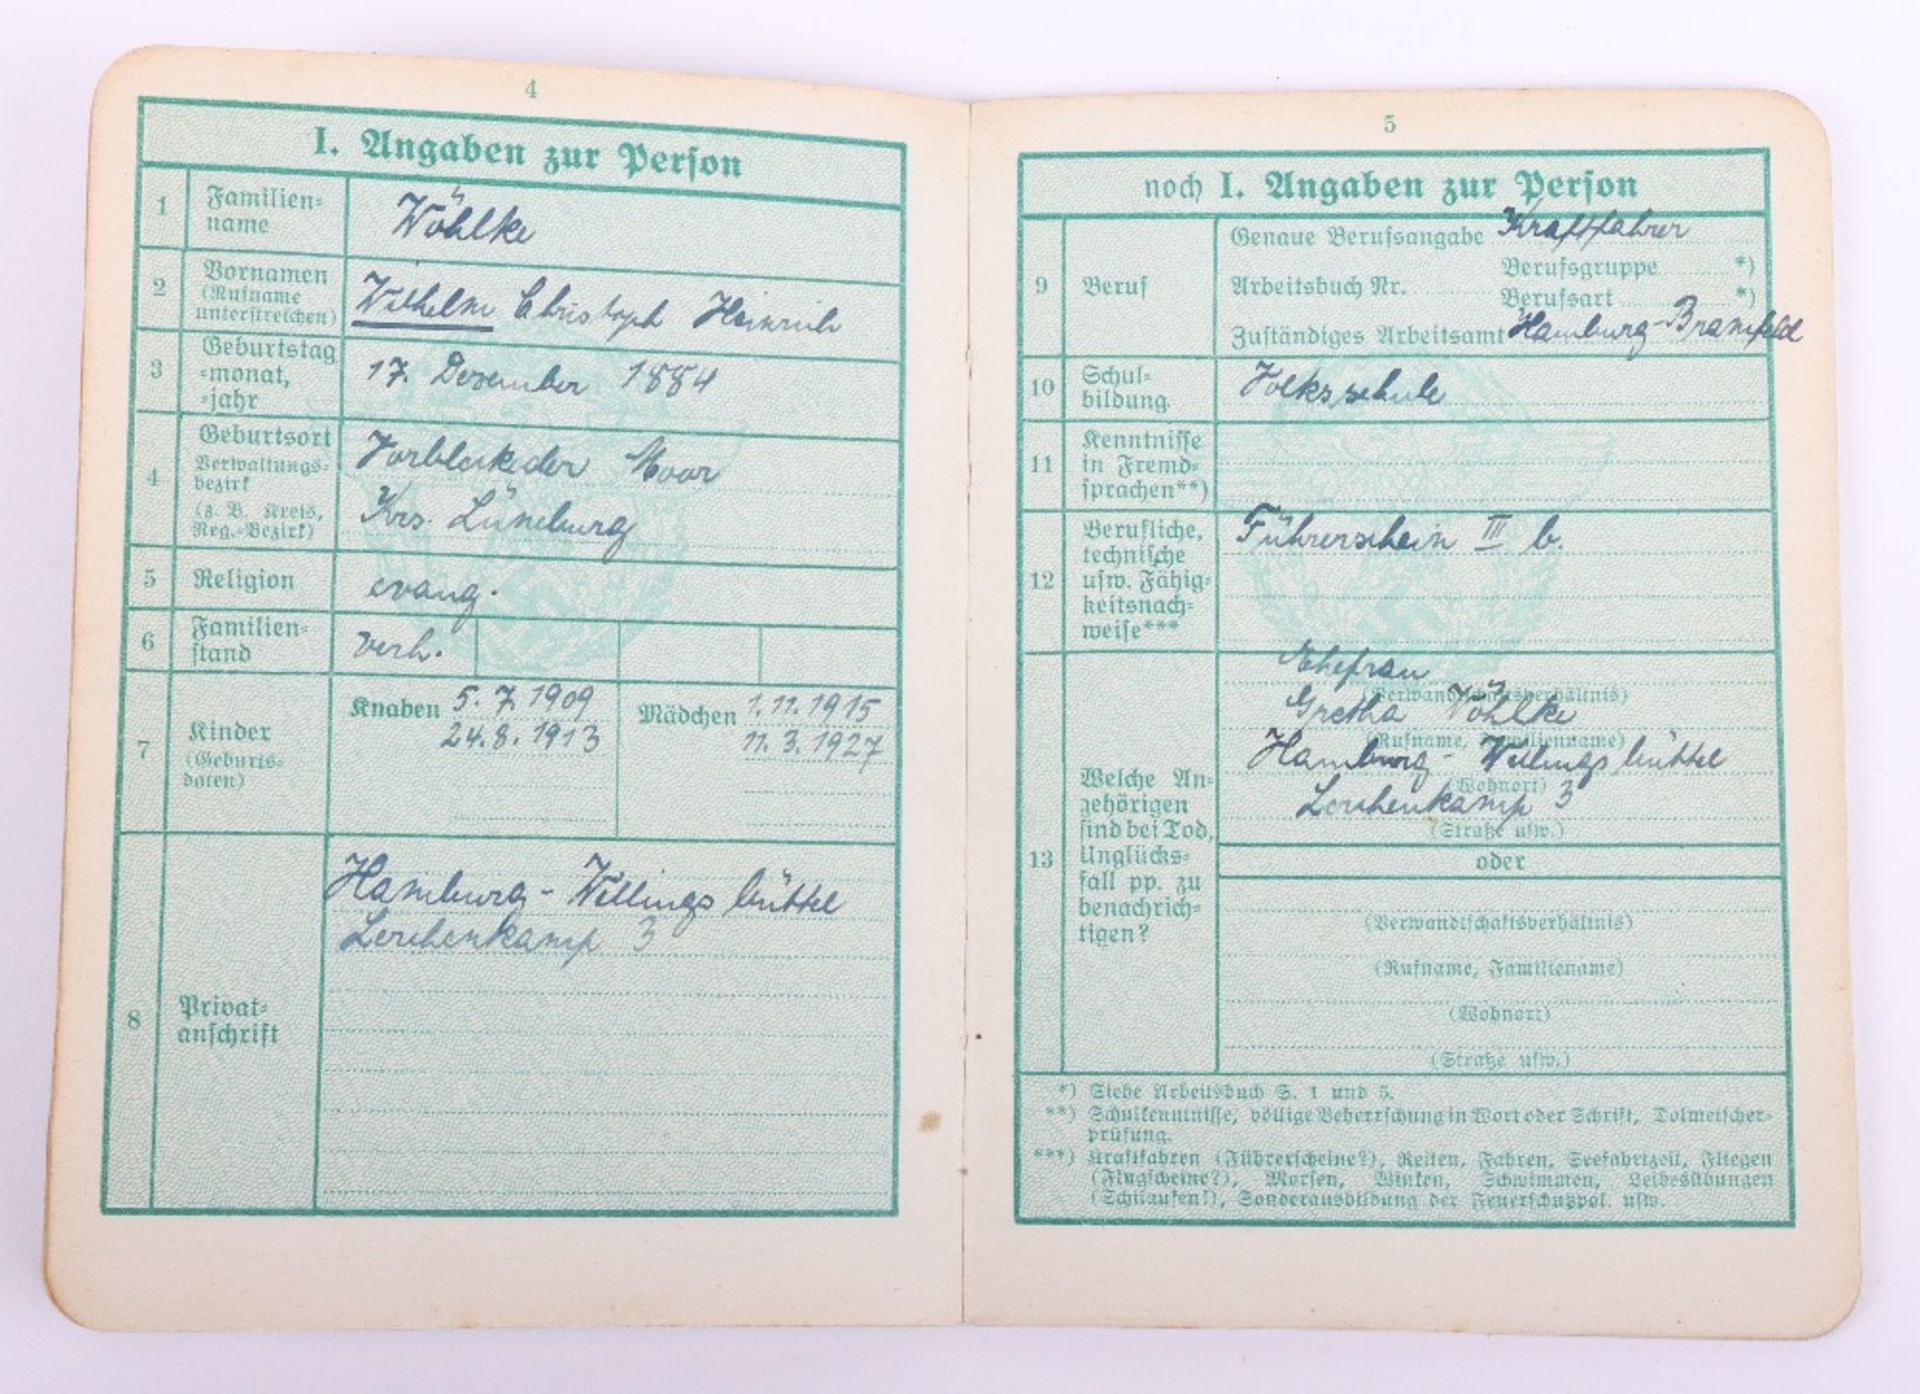 4
I. Angaben zur Person
1
Familien-
name
Wöhlke
2
Vornamen
(Rufname
unterstreichen)
Wilhelm Christoph Heinrich
3
Geburtstag
-monat,
-jahr
17. Dezember 1884
4
Geburtsort
Verwaltungs-
bezirk
(z. B. Kreis,
Reg.-Bezirk)
Vorbleckeder Moor
Krs. Lüneburg
5
Religion
evang.
6
Familien-
stand
verh.
7
Kinder
(Geburts-
daten)
Knaben 5. 7. 1909
24. 8. 1913
Mädchen 1. 11. 1915
11. 3. 1927
8
Privat-
anschrift
Hamburg - Wellingsbüttel
Lerchenkamp 3
5
noch I. Angaben zur Person
9
Beruf
Genaue Berufsangabe Kraftfahrer
Berufsgruppe *)
Arbeitsbuch Nr.
Berufsart *)
Zuständiges Arbeitsamt Hamburg-Bramfeld
10
Schul-
bildung
Volksschule
11
Kenntnisse
in Fremd-
sprachen**)
12
Berufliche,
technische
usw. Fähig-
keitsnach-
weise***
Führerschein III b.
13
Welche An-
gehörigen
sind bei Tod,
Unglücks-
fall pp. zu
benachrich-
tigen?
Ehefrau
(Verwandtschaftsverhältnis)
Gretha Wöhlke
(Rufname, Familienname)
Hamburg - Wellingsbüttel
(Wohnort)
Lerchenkamp 3
(Straße usw.)
oder
(Verwandtschaftsverhältnis)
(Rufname, Familienname)
(Wohnort)
(Straße usw.)
*) Siehe Arbeitsbuch S. 1 und 5.
**) Schulkenntnisse, völlige Beherrschung in Wort oder Schrift, Dolmetscher-
prüfung.
***) Kraftfahren (Führerscheine?), Reiten, Fahren, Seefahrtzeit, Fliegen
(Flugscheine?), Morsen, Winken, Schwimmen, Leibesübungen
(Schilaufen!), Sonderausbildung der Feuerschutzpol. usw.